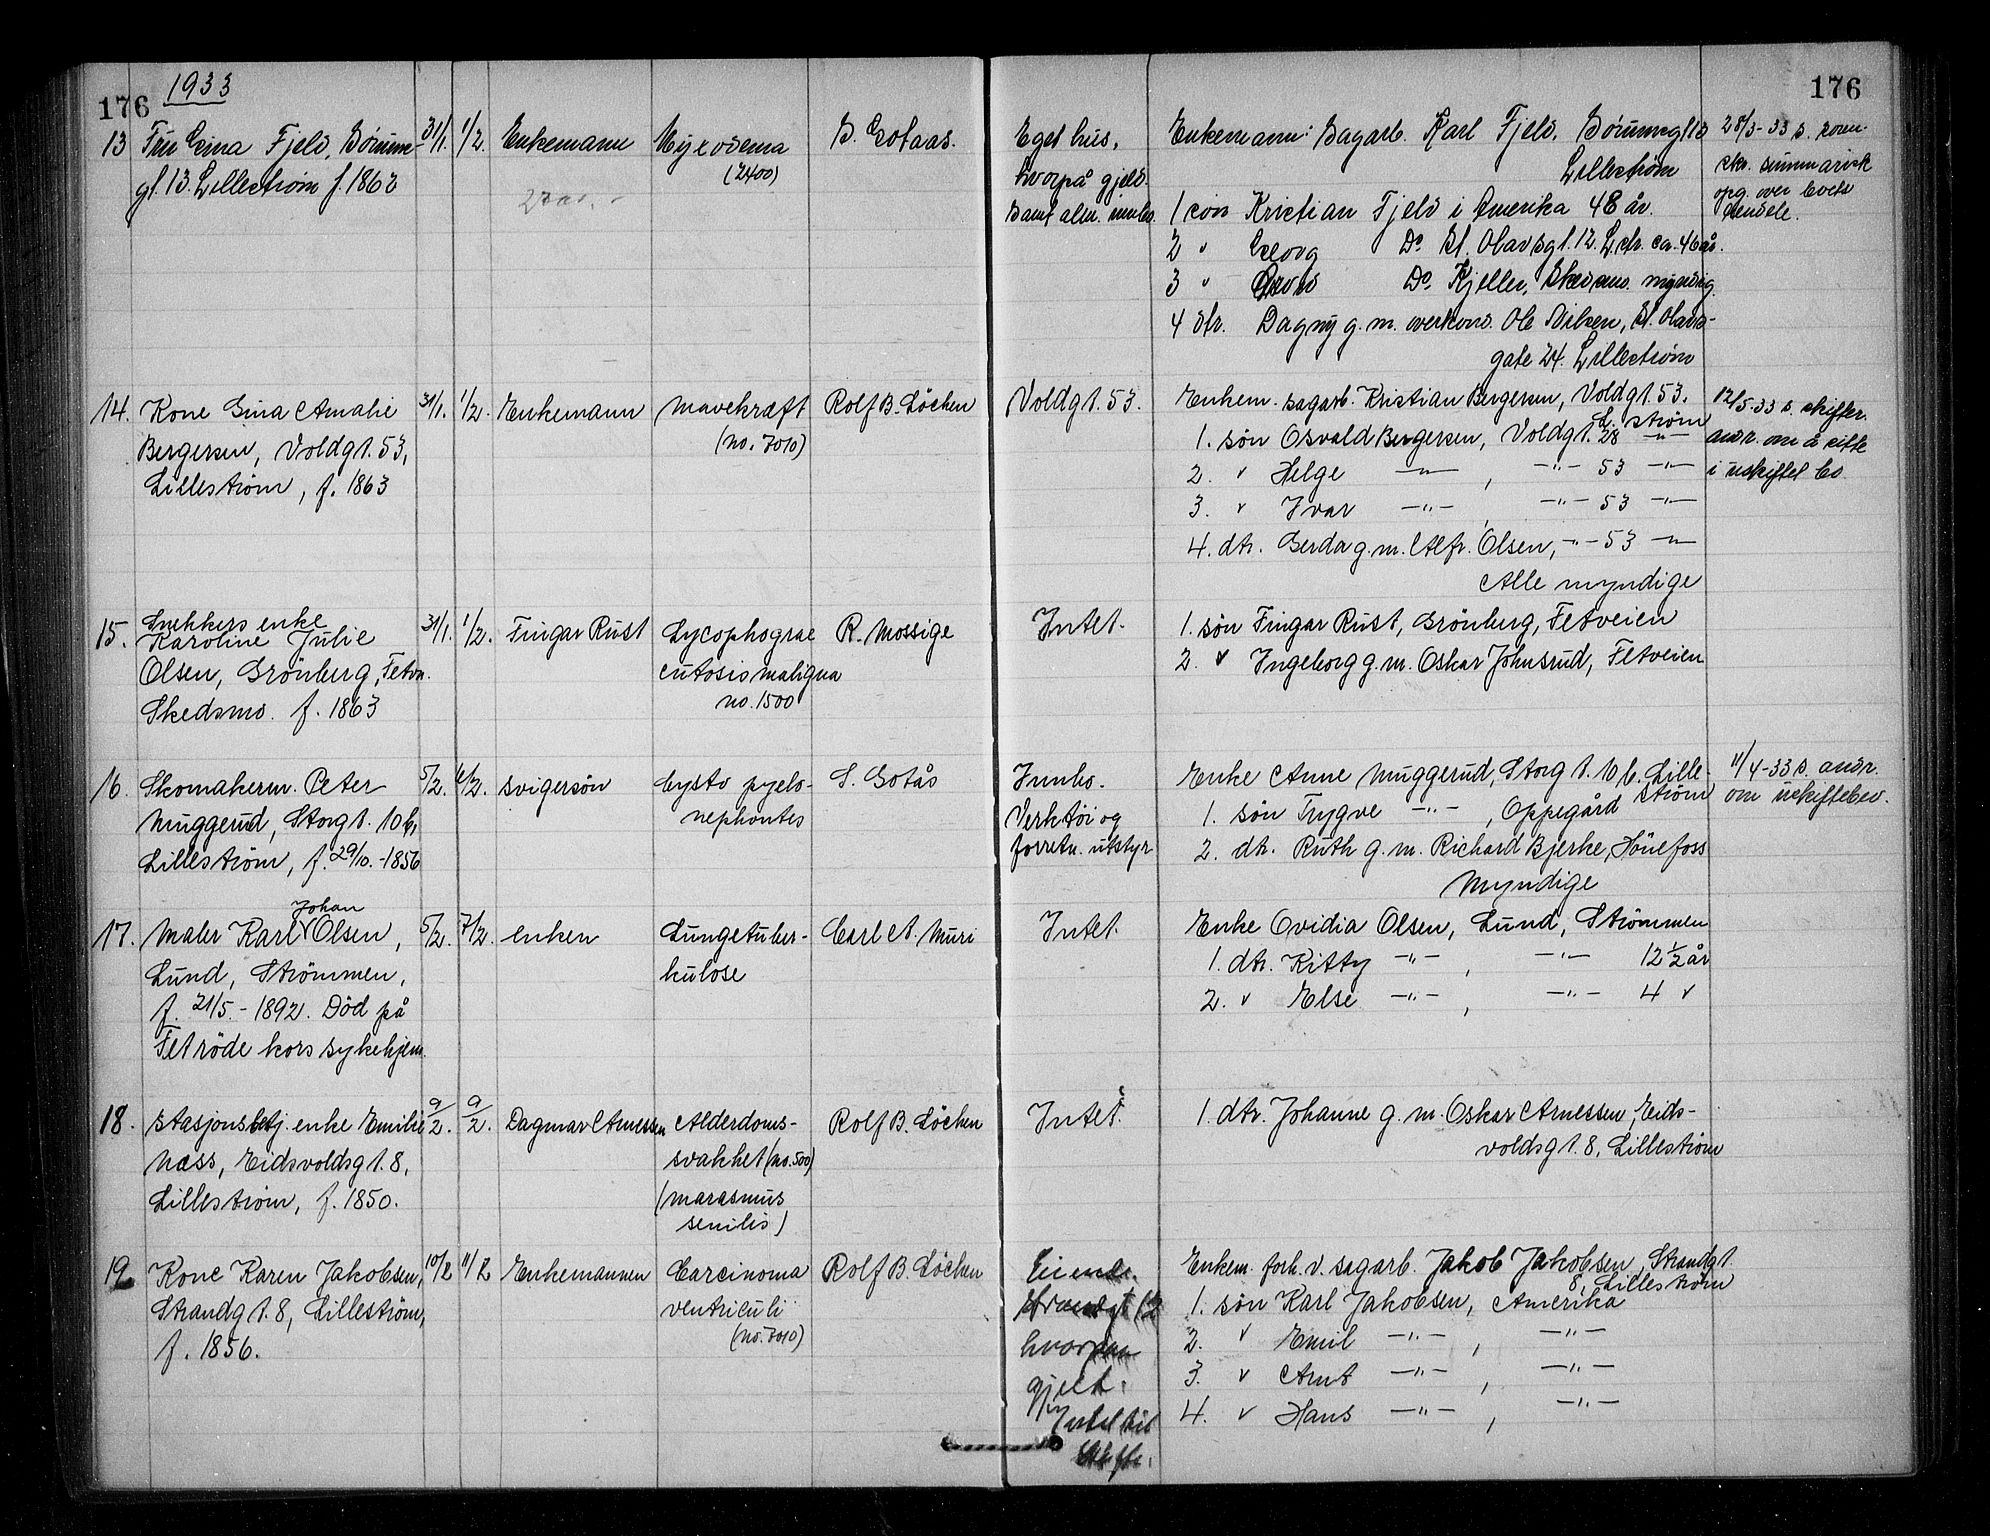 1933
176
176
13 Fru Gina Fjeld, Bórum- 31/1. 1/2. Enkemann Myxodema S. Gotaas. Eget hus, Enkemann: Sagarb. Karl Fjeld, Bórumsgt 13
gt. 13. Lillestrøm f. 1863 (2400) hvorpå gjeld. Lillestrøm
samt alm. innbo. 1 søn Kristian Fjeld i Amerika 48 år.
2 " Georg Do. St. Olavsgt. 12. L.str. ca. 46 år.
3 " Do. Kjeller, Skedsmo. myndig.
4 dtr. Dagny g. m. Ole Nilsen, St. Olavs-
gate 24. Lillestrøm
28/3-33 s.
summarisk
opg. over boets
14. Kone Gina Amalie 31/1. 1/2. Enkemann mavekræft Rolf B. Löchen Voldgt. 53. Enkem. sagarb. Kristian Bergersen, Voldgt. 53.
Bergersen, Voldgt. 53, (no. 7010) L.strøm
Lillestrøm, f. 1863 1. søn Osvald Bergersen, Voldgt. 28 -"-
2. " Helge -"- , -"- 53 -"-
3. " Ivar -"- , -"- 53 -"-
4. dtr. Gerda g. m. Alfr. Olsen, -"- 53 -"-
Alle myndige
12/5-33 s. skifter.
andr. om å sitte
i uskiftet bo.
15. Snekkers enke 31/1. 1/2. Fingar Rust R. Mossige Intet. 1. søn Fingar Rust, Grönberg, Fetveien
Karoline Julie 2. " Ingeborg g. m. Oskar Johnsrud, Fetveien
Olsen, Grönberg, Fetvn. cutosis maligna
Skedsmo. f. 1863 no. 1500
16. Skomakerm. Peter 5/2. 6/2. svigersøn Cysto pyelo- S. Gotås Innbo. Enke Anne Muggerud, Storgt. 10 b. Lille-
Muggerud, Storgt. 10 b, nephontes Verktöi og strøm
Lillestrøm, f. 29/10.-1856 forretn. utstyr 1. søn Trygve -"- , Oppegård
2. dtr. Ruth g. m. Richard Bjerke, Hönefoss
Myndige
11/4-33 s. andr.
om uskiftebev.
17. Maler Karl Johan Olsen, 5/2. 7/2. enken Lungetuber- Carl A. Muri Intet. Enke Ovidia Olsen, Lund, Strömmen
Lund, Strömmen, kulose 1. dtr. Kitty -"- , -"- 12 1/2 år
f. 21/5.-1892. Död på 2. " Else -"- , -"- 4 "
Fet röde kors sykehjem.
18. stasjonsbetj. enke Emilie 9/2. 9/2. Dagmar Arnessen Alderdoms- Rolf B. Löchen Intet. 1. dtr. Johanne g. m. Oskar Arnessen, Eids-
Næss, Eidsvoldsgt. 8, svakhet (no. 500) voldsgt. 8, Lillestrøm
Lillestrøm, f. 1850. (marasmus
senilis)
19 Kone Karen Jakobsen, 10/2 11/2 Enkemannen Carcinoma Rolf B. Löchen Eiend. Enkem. forh. v. sagarb. Jakob Jakobsen, Strandgt.
Strandgt. 8, Lillestrøm, ventriculi Strandgt 12 8, Lillestrøm
f. 1856. (no. 7010) hvorpaa 1. søn Karl Jakobsen, Amerika
gjeld. 2. " Emil -"- , -"-
3. " Arnt -"- , -"-
4. " Hans -"- , -"-
Intet til
Skifte.